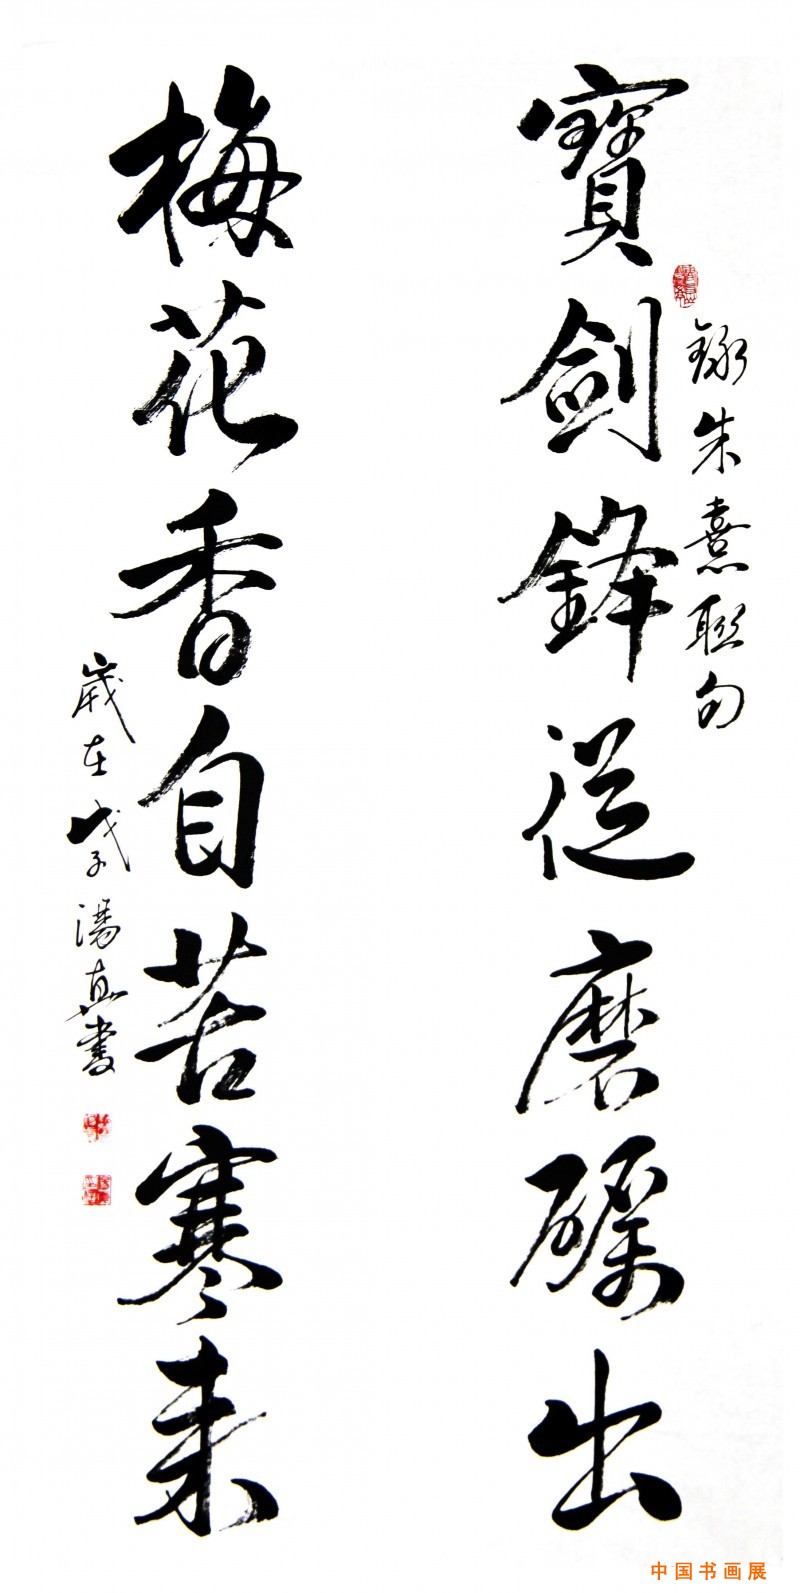 寶劍鋒從磨礪出
錄朱熹聯句
梅花香自苦寒来
歲在戊子湯真書
中国书画展